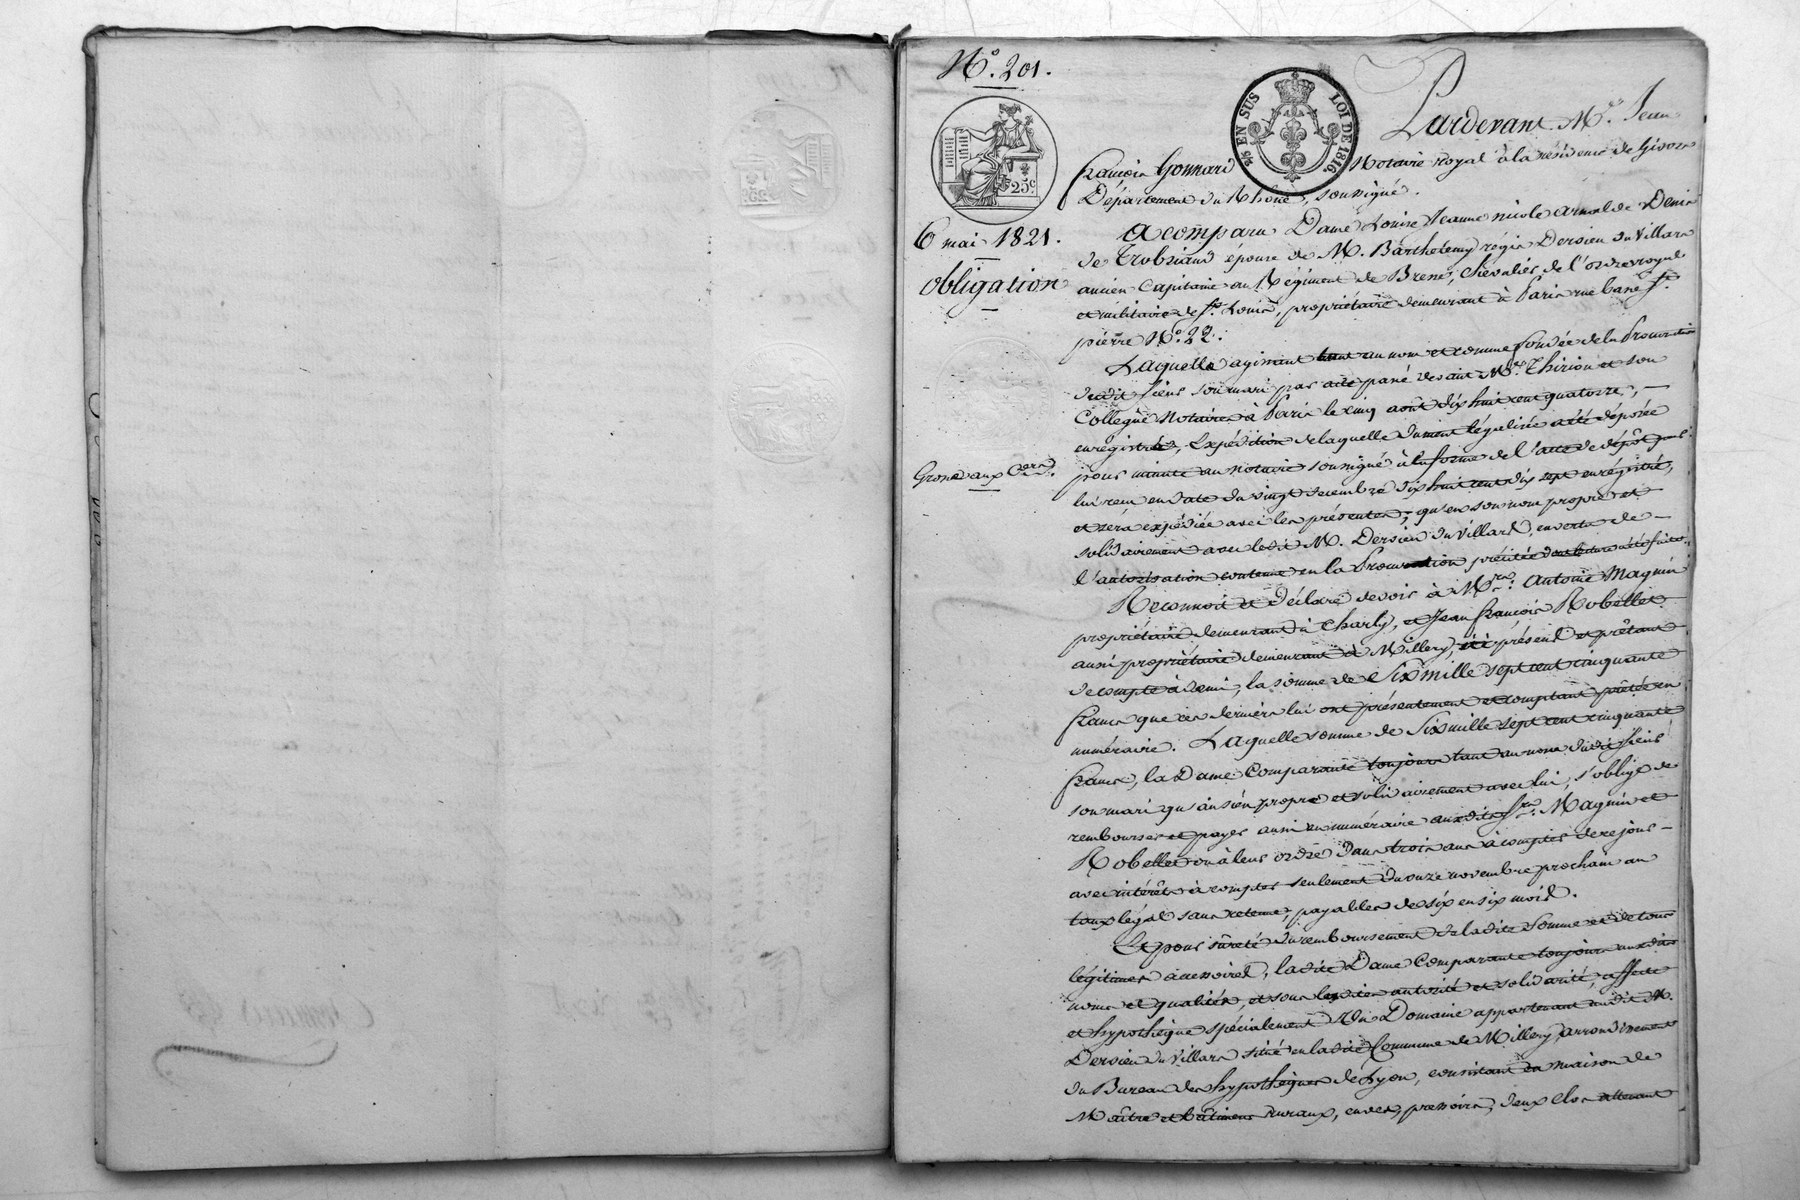 N.º 201.
25 c
EN SUS
LOI DE 1816.
6 mai 1821.
obligation
Grossé aux C.ers
Pardevant M.e Jean
françois Gonnard Notaire royal à la résidence de Givors
Département du Rhône, soussigné.
A comparu Dame Louise Jeanne nicole arnalde Denis
de Trobriand épouse de M. Barthelemy régis Dervieu du Villars
ancien Capitaine au Régiment de Bresse, chevalier de l'ordre royal
et militaire de s.t Louis, propriétaire demeurant à Paris rue basse s.t
pierre N.º 22.
Laquelle agissant tant au nom et comme fondée de la Procuration
dudit sieur son mari par acte passé devant M.e Thirion et son
Collègue Notaires à Paris le cinq août dix huit cent quatorze,
enregistrée, Expédition de laquelle dument légalisée a été déposée
pour minute au notaire soussigné à la forme de l'acte de dépôt par
lui reçu en date du vingt decembre dix huit cent dix sept enregistré,
et sera expédiée avec les présentes; qu'en son nom propre et
solidairement avec ledit M. Dervieu du Villars, en vertu de
l'autorisation contenue en la Procuration précitée dont lecture a été faite.
Reconnoit et Déclare devoir à M.rs Antoine Magnin
propriétaire demeurant à Charly, et Jean françois Robellet
aussi propriétaire demeurant à Millery, ici présens et prêtant
de compte à demi, la somme de Six mille sept cent cinquante
francs que ces derniers lui ont présentement et comptant prêtée en
numéraire. Laquelle somme de Six mille sept cent cinquante
francs, la Dame Comparante toujours tant au nom dudit sieur
son mari qu'au sien propre et solidairement avec lui, s'oblige de
rembourser et payer aussi en numéraire auxdits s.rs Magnin et
Robellet ou à leur ordre dans trois ans à compter de ce jour
avec intérêts à compter seulement du onze novembre prochain au
taux légal sans retenue, payables de six en six mois.
Et pour sûreté du remboursement de ladite Somme et de tous
légitimes accessoires, ladite Dame Comparante toujours auxdits
noms et qualités, et sous lesdites autorité et solidarité, affecte
et hypothèque spécialement Un Domaine appartenant audit M.
Dervieu du Villars situé en ladite Commune de Millery, arrondissement
du Bureau des hypothèques de Lyon, consistant en maison de
Maître et bâtimens ruraux, cuves, pressoirs, deux clos attenant